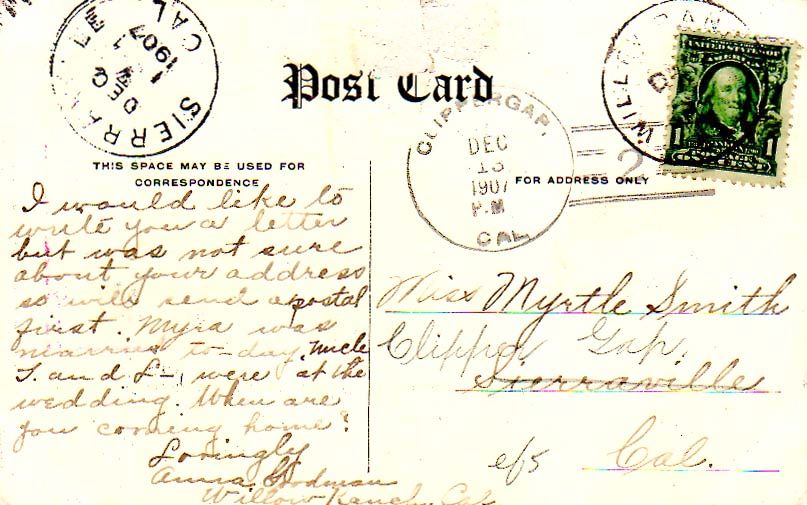 SIERRAVILLE
DEC
1907
CAL
Post Card
CLIPPERGAP,
DEC
13
1907
P.M
CAL
WILLOW RAN
1
THIS SPACE MAY BE USED FOR
CORRESPONDENCE
FOR ADDRESS ONLY
2
I would like to
write you a letter
but was not sure
about your address
so will send a postal
first. Myra was
married to-day, Uncle
and L— were at the
wedding. When are
you coming home?
Lovingly
Anna Goodman
Willow Ranch, Cal
Miss Myrtle Smith
Clipper Gap,
Sierraville
Cal.